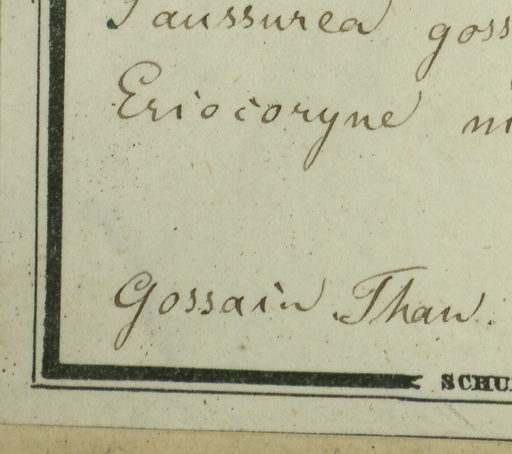 Saussurea goss
Eriocoryne ni
Gossain Than.
SCHU